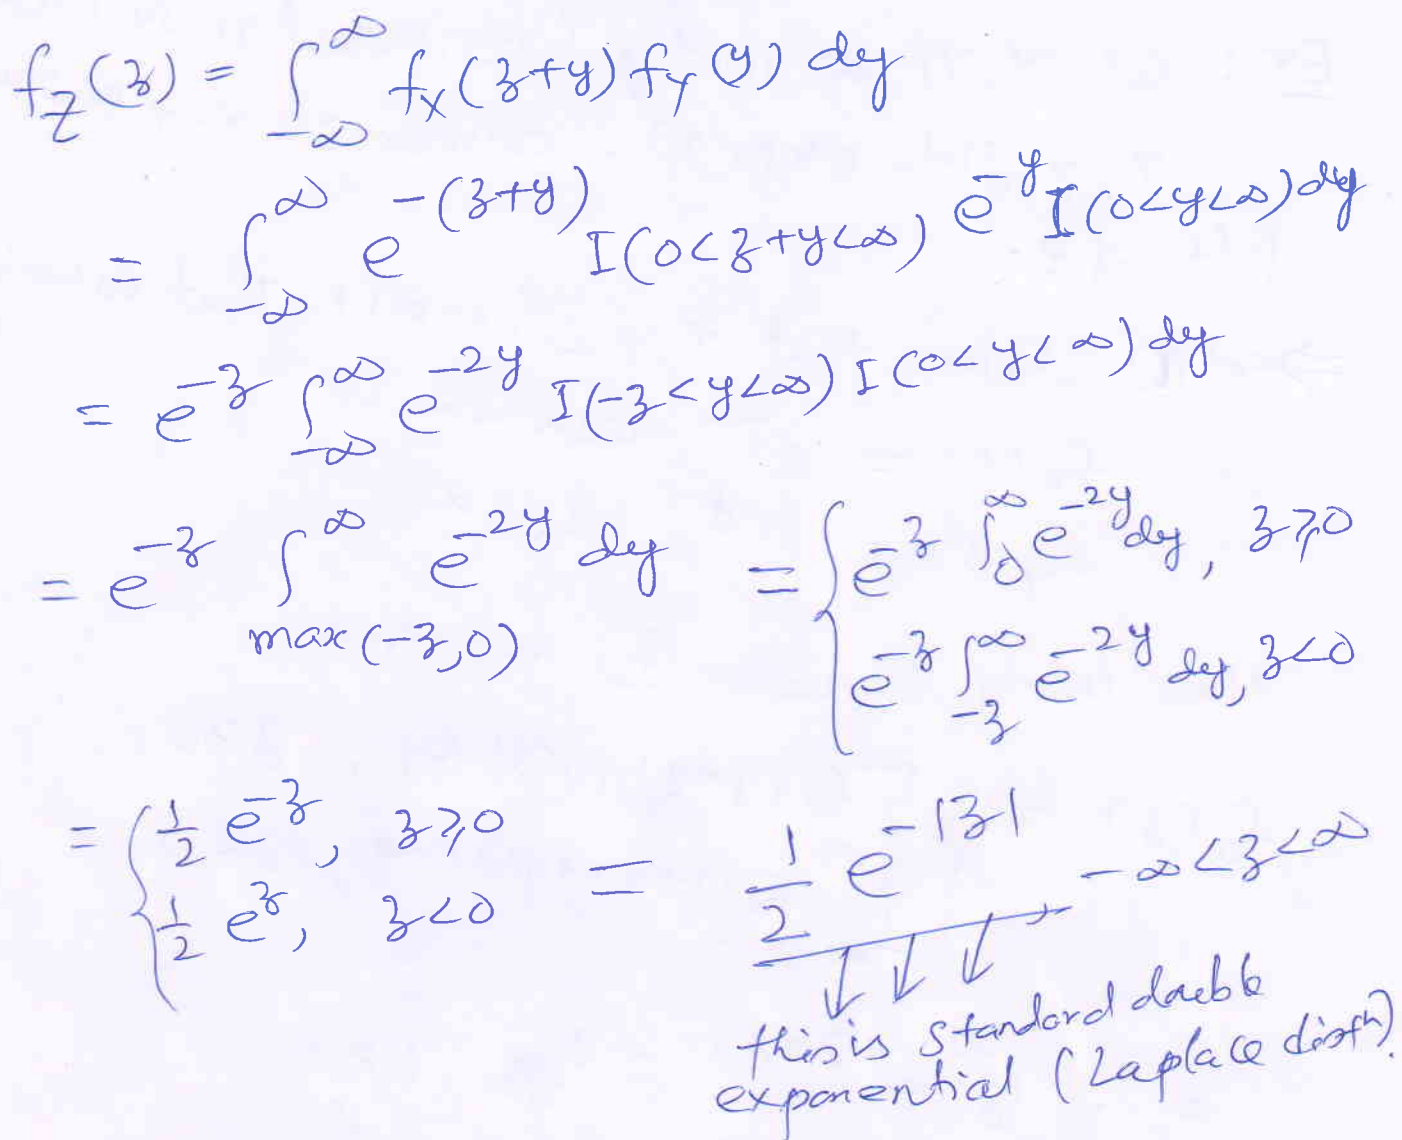 f_Z(z) = ∫_{-∞}^{∞} f_X(z+y) f_Y(y) dy
= ∫_{-∞}^{∞} e^{-(z+y)} I(0<z+y<∞) e^{-y} I(0<y<∞) dy
= e^{-z} ∫_{-∞}^{∞} e^{-2y} I(-z<y<∞) I(0<y<∞) dy
= e^{-z} ∫_{max(-z,0)}^{∞} e^{-2y} dy = { e^{-z} ∫_0^{∞} e^{-2y} dy, z≥0
e^{-z} ∫_{-z}^{∞} e^{-2y} dy, z<0
= { 1/2 e^{-z}, z≥0 = 1/2 e^{-|z|} -∞<z<∞
1/2 e^{z}, z<0
this is standard double
exponential (Laplace distⁿ).